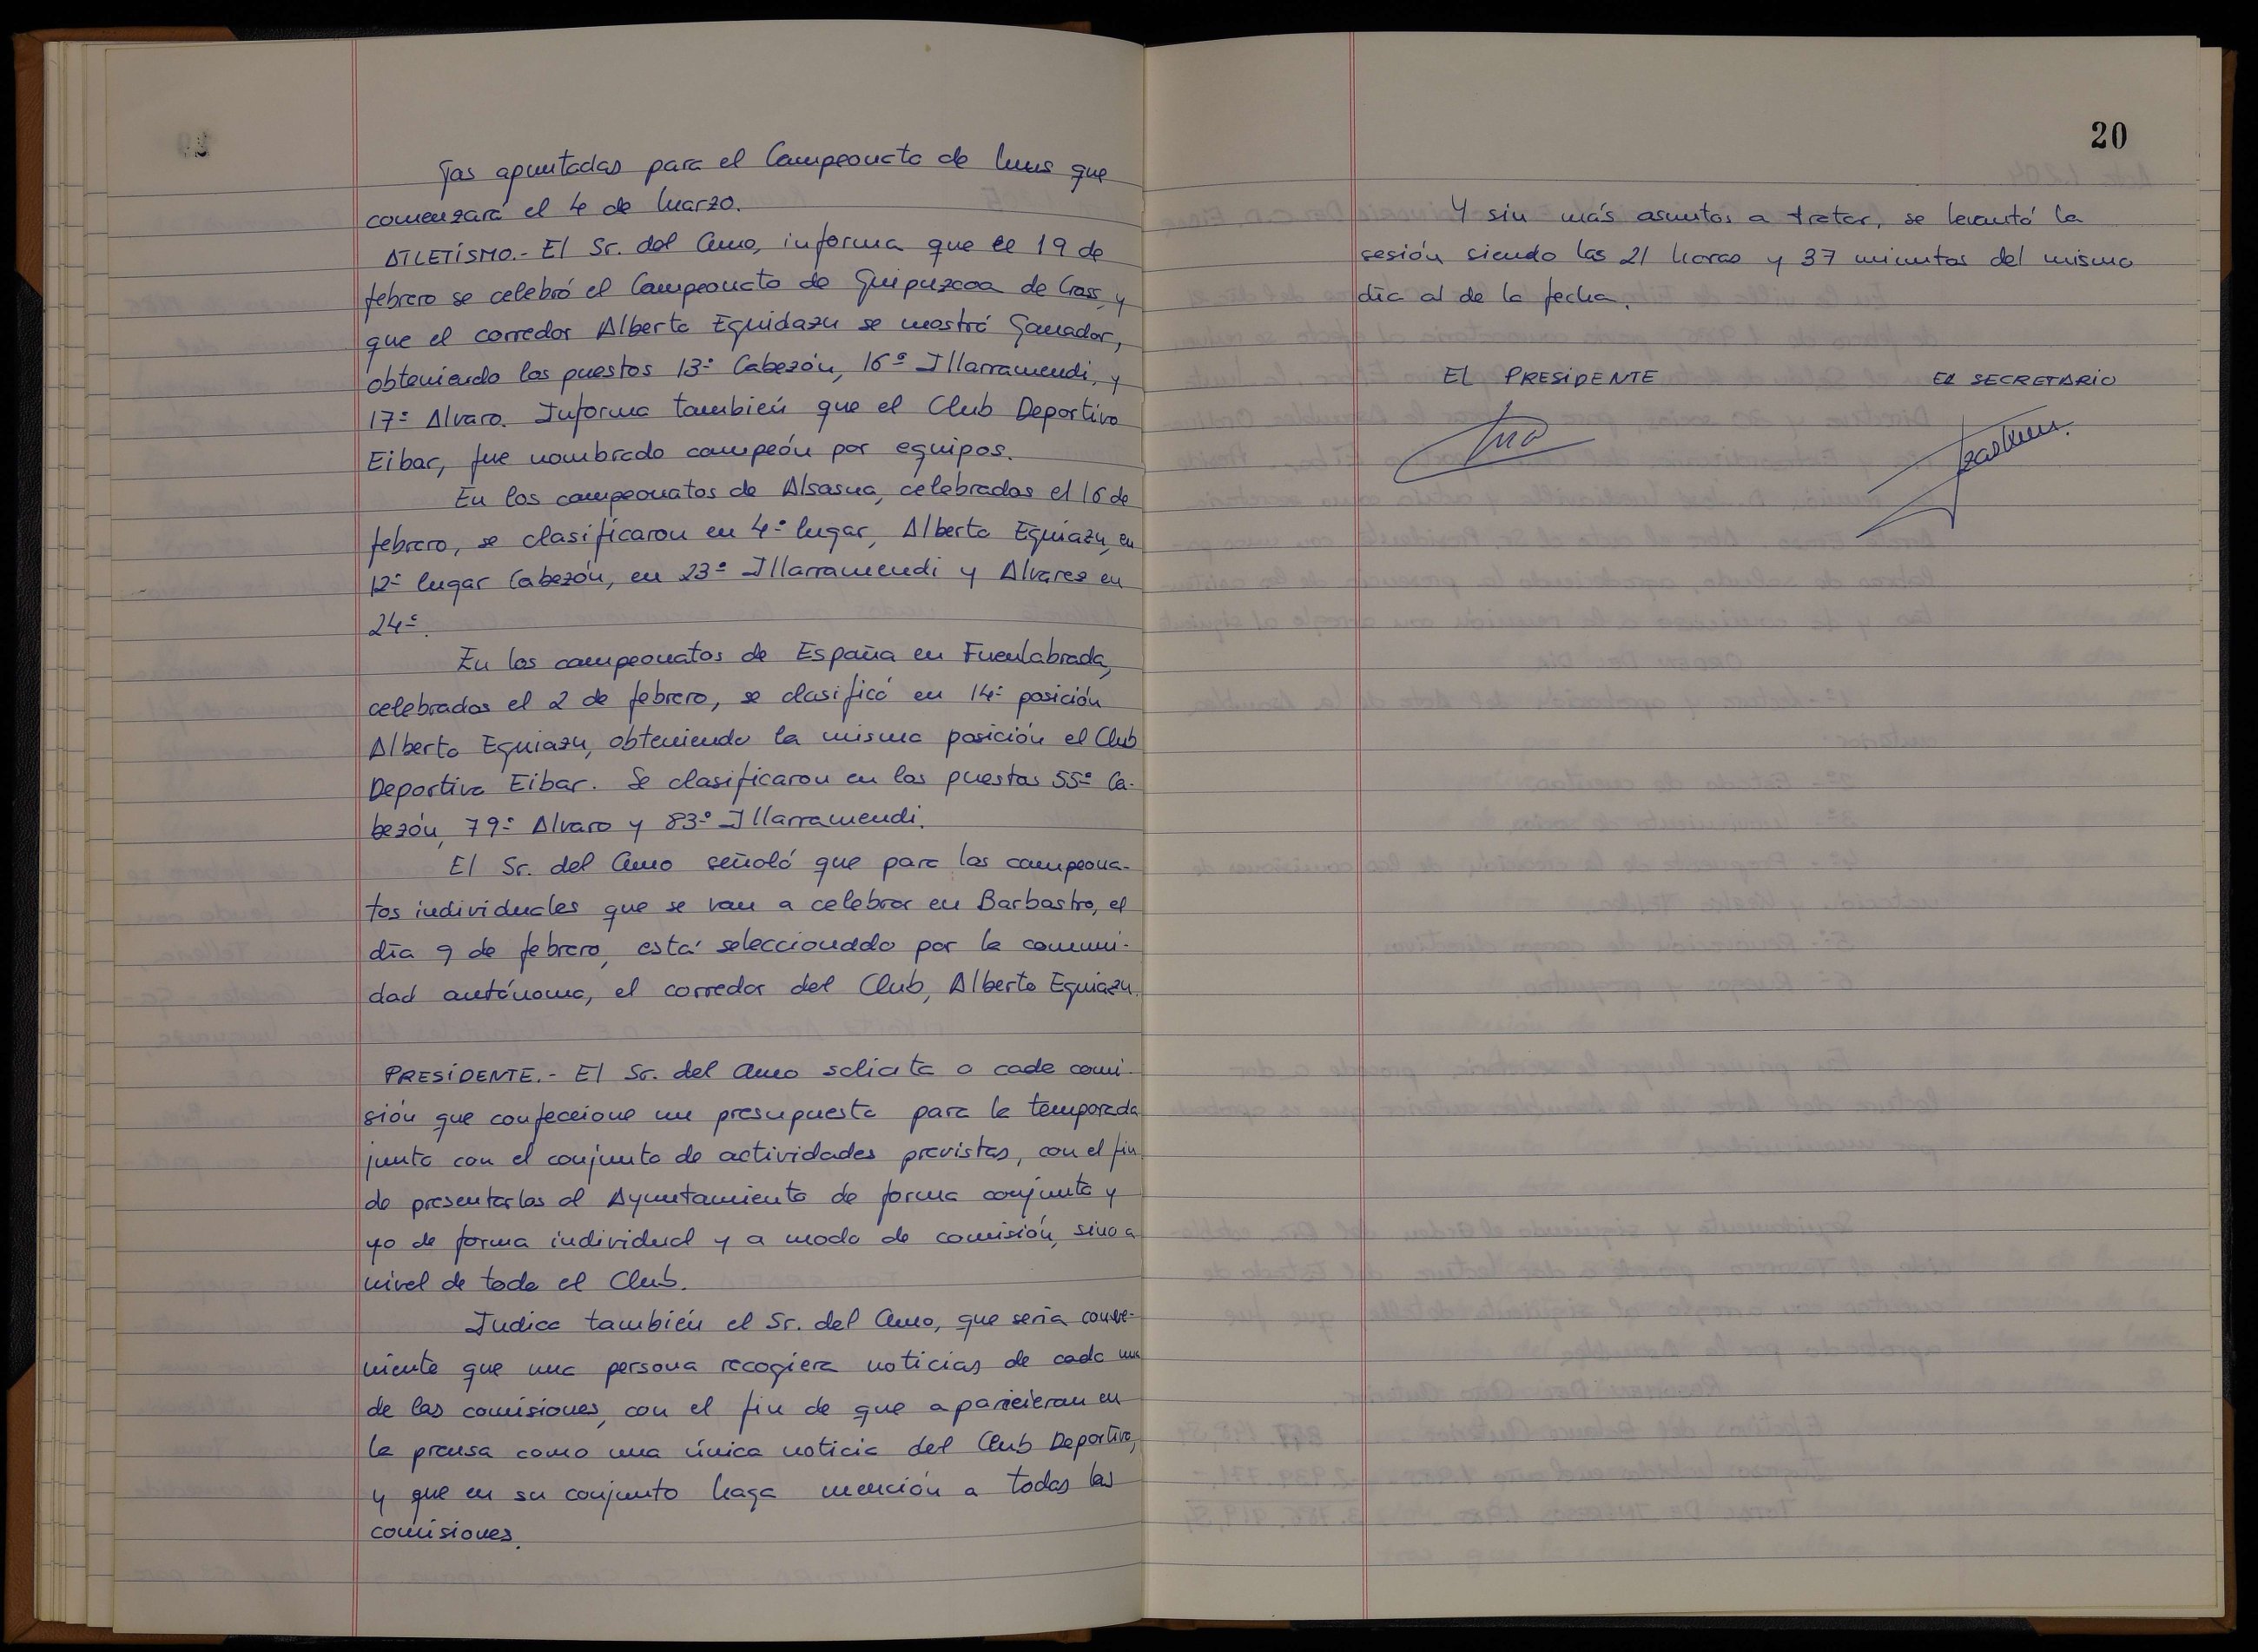 jas apuntadas para el Campeonato de Mus que
comenzará el 4 de Marzo.
ATLETISMO.- El Sr. del Amo, informa que el 19 de
febrero se celebró el Campeonato de Guipuzcoa de Cross, y
que el corredor Alberto Eguidazu se mostró Ganador,
obteniendo los puestos 13º Cabezón, 16º Illarramendi, y
17º Alvaro. Informa también que el Club Deportivo
Eibar, fue nombrado campeón por equipos.
En los campeonatos de Alsasua, celebrados el 16 de
febrero, se clasificaron en 4º lugar, Alberto Eguiazu, en
12º lugar Cabezón, en 23º Illarramendi y Alvarez en
24º.
En los campeonatos de España en Fuenlabrada,
celebrados el 2 de febrero, se clasificó en 14º posición
Alberto Eguiazu, obteniendo la misma posición el Club
Deportivo Eibar. Se clasificaron en los puestos 55º Ca-
bezón, 79º Alvaro y 83º Illarramendi.
El Sr. del Amo señaló que para los campeona-
tos individuales que se van a celebrar en Barbastro, el
día 9 de febrero, está seleccionado por la comuni-
dad autónoma, el corredor del Club, Alberto Eguiazu.
PRESIDENTE.- El Sr. del Amo solicita a cada comi-
sión que confeccione un presupuesto para la temporada
junto con el conjunto de actividades previstas, con el fin
de presentarlos al Ayuntamiento de forma conjunta y
yo de forma individual y a modo de comisión, sino a
nivel de todo el Club.
Indica también el Sr. del Amo, que sería conve-
niente que una persona recogiera noticias de cada una
de las comisiones, con el fin de que aparecieran en
la prensa como una única noticia del Club Deportivo,
y que en su conjunto haga mención a todas las
comisiones.
20
Y sin más asuntos a tratar, se levantó la
sesión siendo las 21 horas y 37 minutos del mismo
día al de la fecha.
EL PRESIDENTE EL SECRETARIO